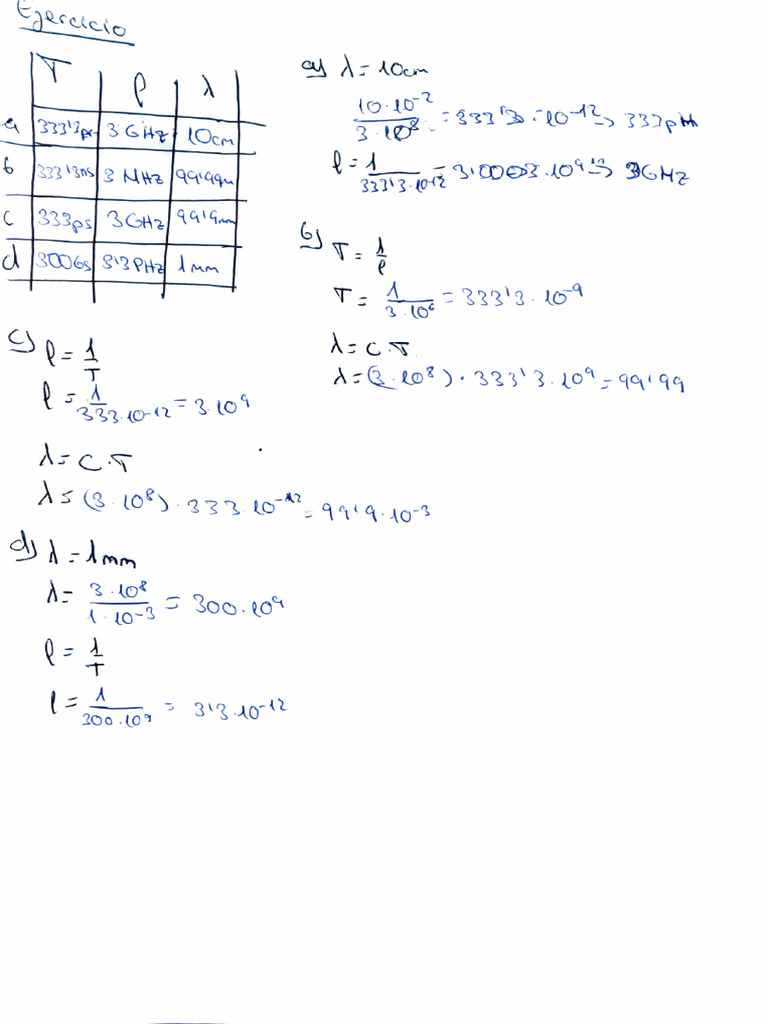 Ejercicio
T f λ
a 333'3ps 3GHz 10cm
b 333'3ns 3 MHz 99'99m
c 333ps 3GHz 99'9mm
d 300Gs 3'3PHz 1mm
a) λ = 10cm
10·10^-2 / 3·10^8 = 333'3·10^-12 => 333p
f = 1 / 333'3·10^-12 = 3'0003·10^9 => 3GHz
b) T = 1/f
T = 1 / 3·10^6 = 333'3·10^-9
λ = C·T
λ = (3·10^8)·333'3·10^9 = 99'99
c) f = 1/T
f = 1 / 333·10^-12 = 3·10^9
λ = C·T
λ = (3·10^8)·333·10^-12 = 99'9·10^-3
d) λ = 1mm
λ = 3·10^8 / 1·10^-3 = 300·10^9
f = 1/T
f = 1 / 300·10^9 = 3'3·10^-12